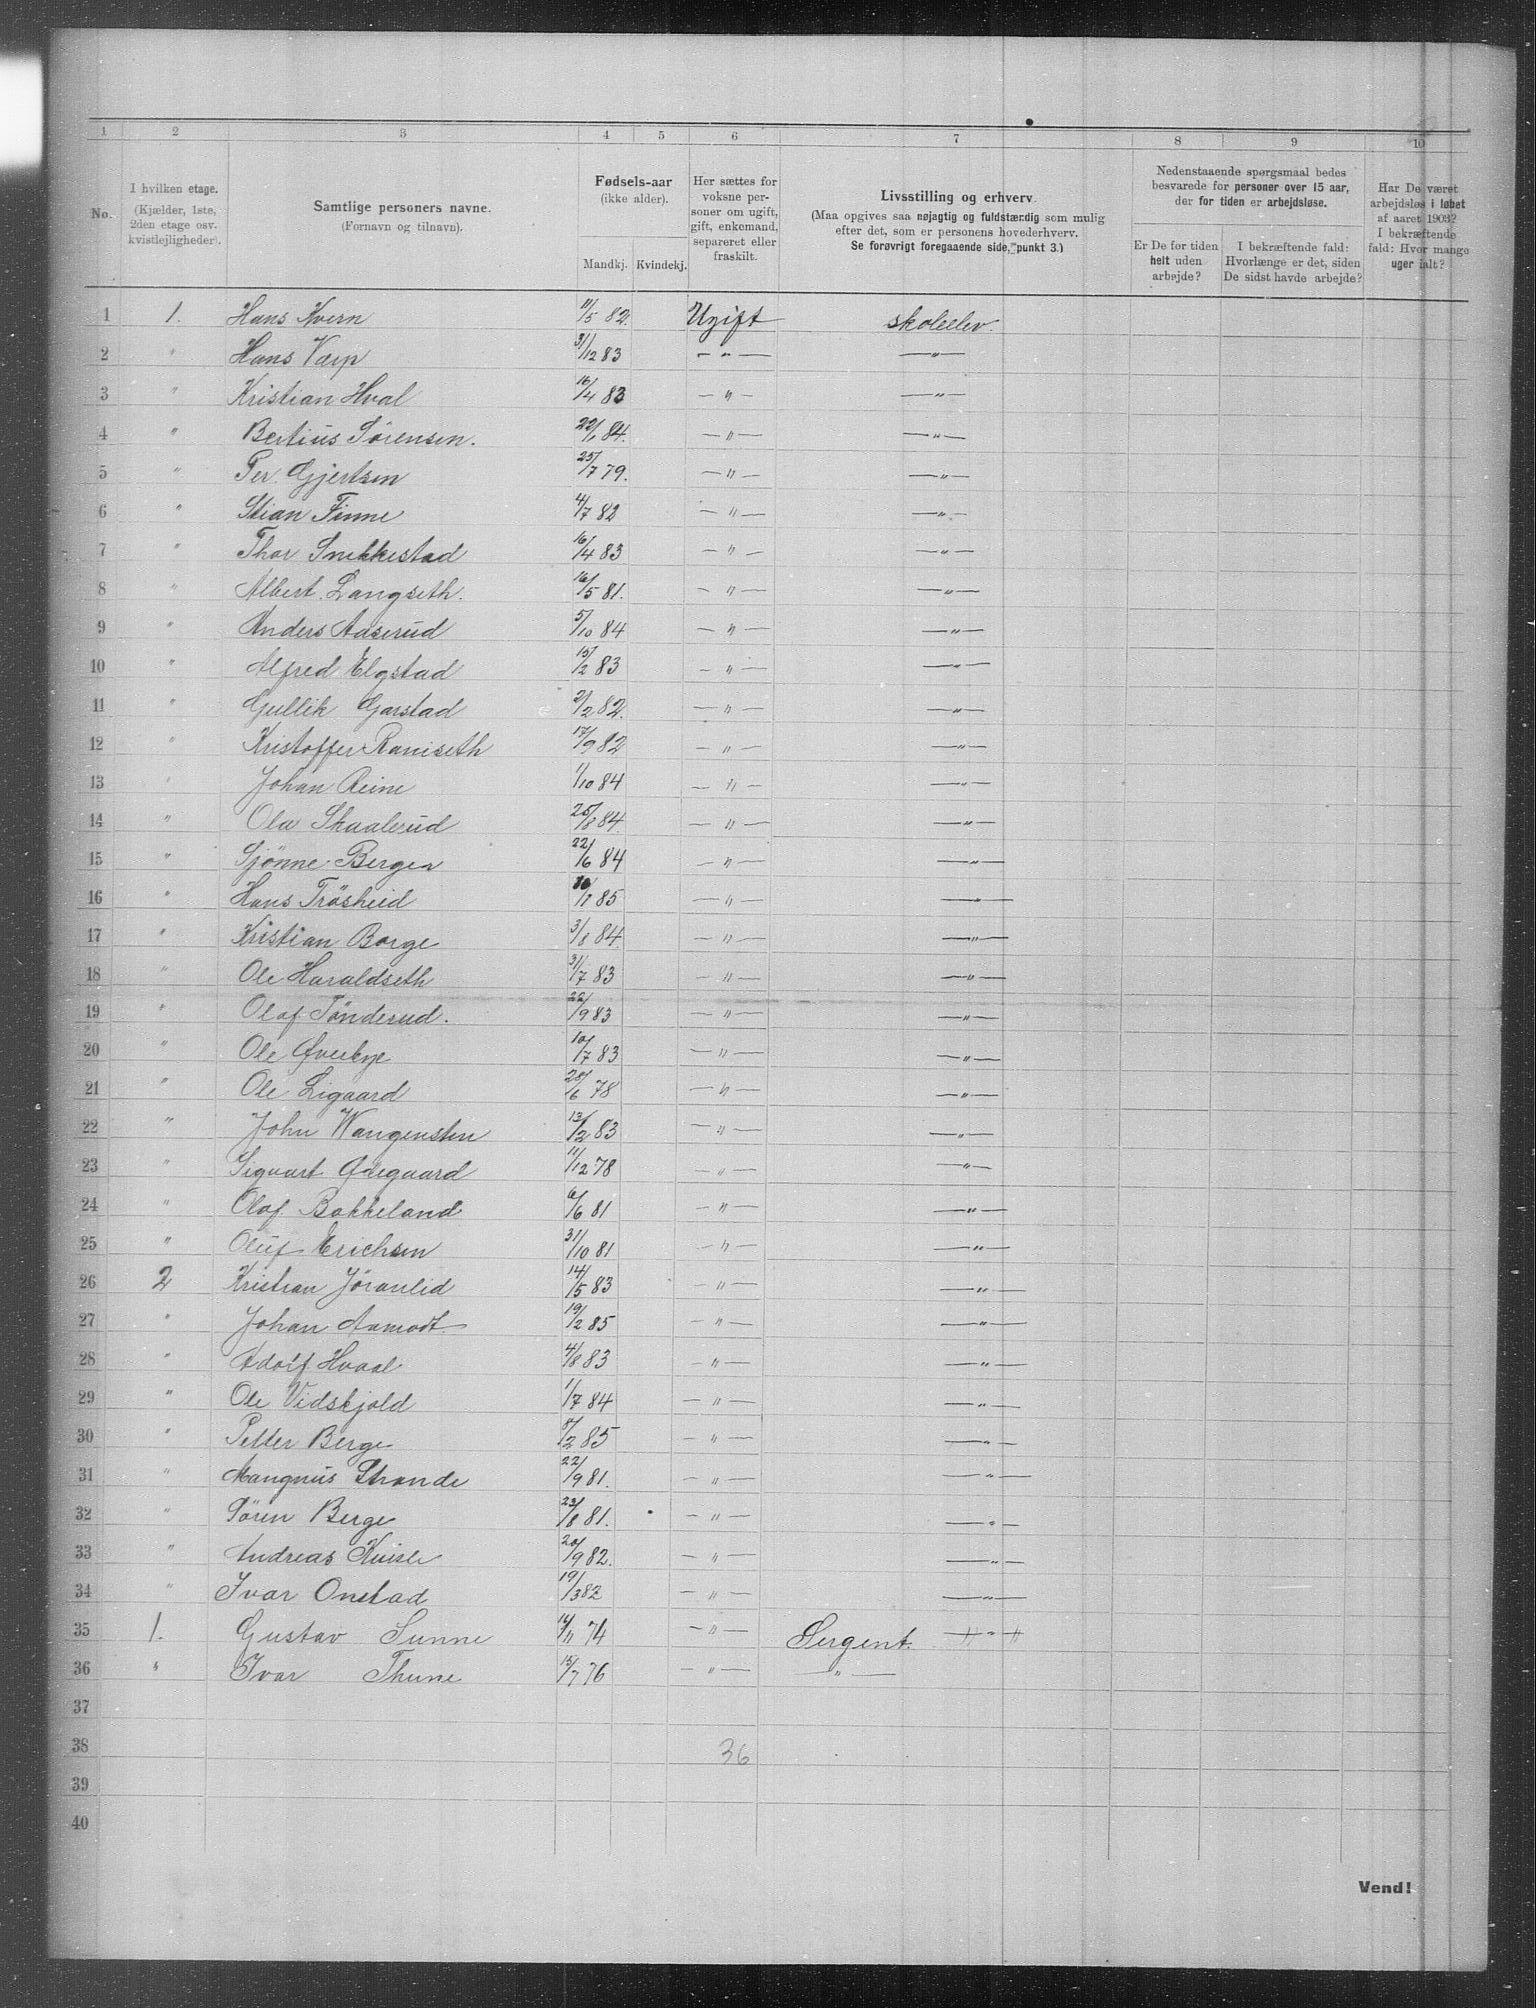 1 2 3 4 5 6 7 8 9 10
No. I hvilken etage. (Kjælder, 1ste, 2den etage osv. kvistlejligheder). Samtlige personers navne. (Fornavn og tilnavn). Fødsels-aar (ikke alder). Mandkj. Kvindekj. Her sættes for voksne personer om ugift, gift, enkemand, separeret eller fraskilt. Livsstilling og erhverv. (Maa opgives saa nøjagtig og fuldstændig som mulig efter det, som er personens hovederhverv. Se forøvrigt foregaaende side, punkt 3.) Nedenstaaende spørgsmaal bedes besvarede for personer over 15 aar, der for tiden er arbejdsløse. Er De for tiden helt uden arbejde? I bekræftende fald: Hvorlænge er det, siden De sidst havde arbejde? Har De været arbejdsløs i løbet af aaret 1903? I bekræftende fald: Hvor mange uger ialt?
1 1. Hans Kvern 11/5 82. Ugift skoleelev
2 " Hans Værp 31/12 83 — " — — " —
3 " Kristian Hval 16/4 83 — " — — " —
4 " Bertius Sørensen. 22/1 84. — " — — " —
5 " Per Gjertsen 25/7 79. — " — — " —
6 " Stian Finne 4/7 82 — " — — " —
7 " Thor Snekkestad 16/4 83 — " — — " —
8 " Albert Langseth. 16/5 81. — " — — " —
9 " Anders Aaserud 5/10 84 — " — — " —
10 " Alfred Elgstad 15/2 83 — " — — " —
11 " Gullik Garstad 2/2 82. — " — — " —
12 " Kristoffer Ramseth 17/9 82 — " — — " —
13 " Johan Reine 1/10 84 — " — — " —
14 " Ola Skaalerud 25/8 84. — " — — " —
15 " Sjönne Bergen 22/6 84 — " — — " —
16 " Hans Tröskeid 10/1 85 — " — — " —
17 " Kristian Borge 3/8 84. — " — — " —
18 " Ole Haraldseth 31/7 83 — " — — " —
19 " Olaf Tönderud. 22/9 83 — " — — " —
20 " Ole Øverbye 10/7 83 — " — — " —
21 " Ole Ligaard 28/6 78 — " — — " —
22 " John Wangensten 13/2 83 — " — — " —
23 " Sigvart Ødegaard 11/12 78 — " — — " —
24 " Olaf Bakkeland 6/6 81 — " — — " —
25 " Oluf Erichsen 31/10 81 — " — — " —
26 2 Kristian Jöranlid 14/5 83 — " — — " —
27 " Johan Aamodt 19/2 85 — " — — " —
28 " Adolf Hvaal 4/8 83 — " — — " —
29 " Ole Vidskjold 1/7 84 — " — — " —
30 " Petter Berge 8/2 85 — " — — " —
31 " Mangnus Strande 22/9 81. — " — — " —
32 " Sören Berge 23/8 81. — " — — " —
33 " Andreas Kvisle 20/9 82. — " — — " —
34 " Ivar Onstad 19/3 82 — " — — " —
35 1. Gustav Sunne 14/11 74 — " — Sergent. — " —
36 " Ivar Thune 15/7 76 — " — " —
37
38 36
39
40
Vend!